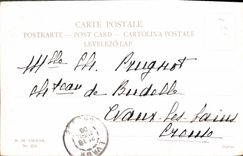 CARTE POSTALE
POSTKARTE — POST CARD — CARTOLINA POSTALE
LEVELEZŐ-LAP
Mlle Ch. Prugnot
Château de Budelle
Evaux les bains
Creuse
M. M. VIENNE
Nr.